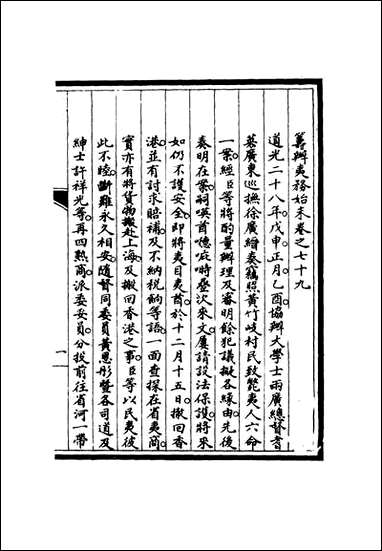 籌辦夷務始末卷之七十九
道光二十八年戊申正月乙酉協辦大學士兩廣總督耆
英廣東巡撫徐廣縉奏竊照黃竹岐村民致斃夷人六命
一案經臣等將酌量辦理及審明餘犯議擬各緣由先後
奏明在案嗣㗎酋德庇時疊次來文屢請設法保護將來
如仍不護安全即將夷目夷商於十二月十五日撤回香
港並有討求賠補及不納稅餉等語一面查探在省夷商
實亦有將貨物搬赴上海及撤回香港之事臣等以民夷彼
此不睦斷難永久相安隨督同委員黃恩彤暨各司道及
紳士許祥光等再四熟商派委妥員分投前往省河一帶
一